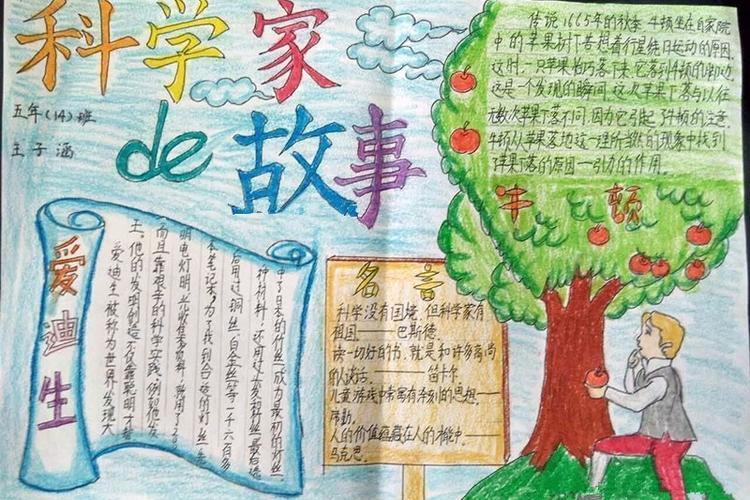 科学家
de 故事
五年(14)班
王子涵
传说1665年的秋季牛顿坐在自家院
中的苹果树下苦想着行星绕日运动的原因.
这时,一只苹果恰巧落下来,它落到牛顿的脚边.
这是一个发现的瞬间,这次苹果下落与以往
无数次苹果下落不同,因为它引起了牛顿的注意.
牛顿从苹果落地这一理所当然的现象中找到
苹果下落的原因——引力的作用.
牛顿
爱迪生
爱迪生被称为世界发现大
王。他的发明创造不仅靠聪明才智
而且靠艰辛的科学实践.例如他发
明电灯时
本笔记本.为了找到合适的灯丝.先
后用过铜丝.白金丝等一千六百多
种材料.还用过头发和
中了日本的竹丝成为最初的灯丝
名言
科学没有国境,但科学家有
祖国.——巴斯德.
读一切好的书,就是和许多高尚
的人谈话.——笛卡尔.
儿童游戏中常寓有深刻的思想.——
席勒.
人的价值蕴藏在人的才能中.——
马克思.